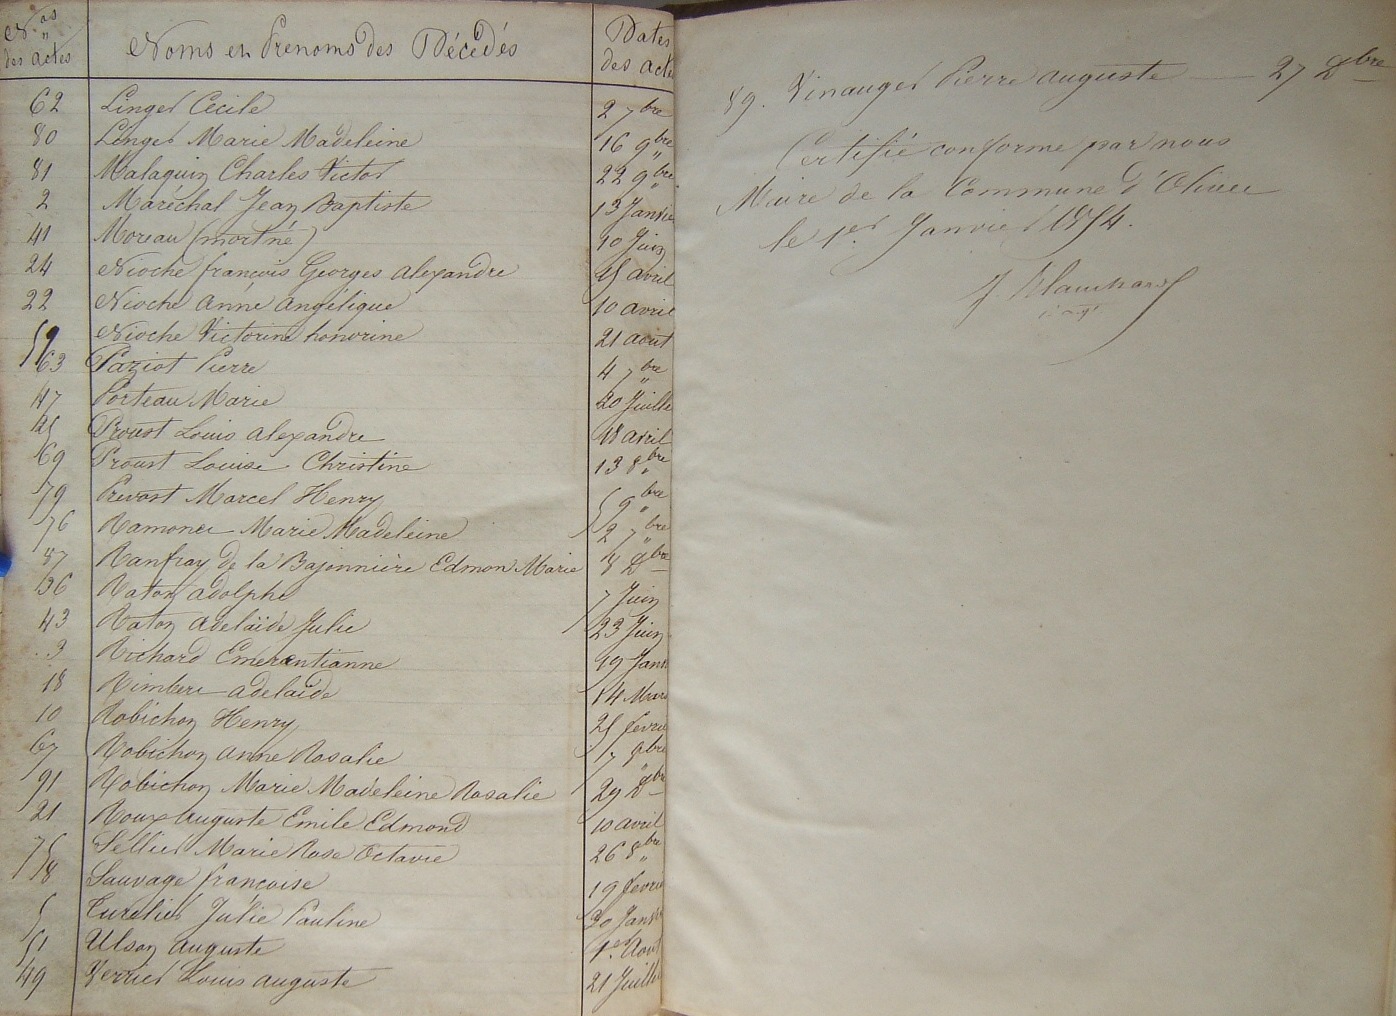 Nos des actes Noms et Prenoms des Décédés Dates des actes
62 Linger Cécile 2 7bre
80 Linger Marie Madeleine 16 9bre
81 Malaquin Charles Victor 22 9bre
2 Maréchal Jean Baptiste 13 Janvie
41 Moreau (mort né) 10 Juin
24 Nioche françois Georges alexandre 15 avril
22 Nioche anne angélique 10 avril
59 Nioche Victorine honorine 21 aout
63 Paziot Pierre 4 7bre
47 Porteau Marie 20 Juille
25 Proust Louis alexandre 18 avril
69 Proust Louise Christine 13 8bre
79 Prevost Marcel Henry 5 9bre
76 Ramoner Marie Madeleine 2 7bre
87 Ranfray de la Bajonnière Edmon Marie 8 Xbre
36 Raton adolphe 7 Juin
43 Raton adelaïde Julie 23 Juin
3 Richard Emerantianne 19 Janv
18 Rimbert adelaïde 14 Mars
10 Robichon Henry 25 fevri
67 Robichon anne Rosalie 7 8bre
91 Robichon Marie Madeleine Rosalie 29 Xbre
21 Roux auguste Emile Edmond 10 avril
75 Sellier Marie Rose Octavie 26 8bre
8 Sauvage françoise 19 fevri
5 Turelier Julie Pauline 20 Janv
51 Ulson auguste 1er Aout
49 Verrier Louis auguste 21 Juille
89. Vinauger Pierre auguste 27 Xbre
Certifié conforme par nous
Maire de la Commune d'Olivet
le 1er Janvier 1854.